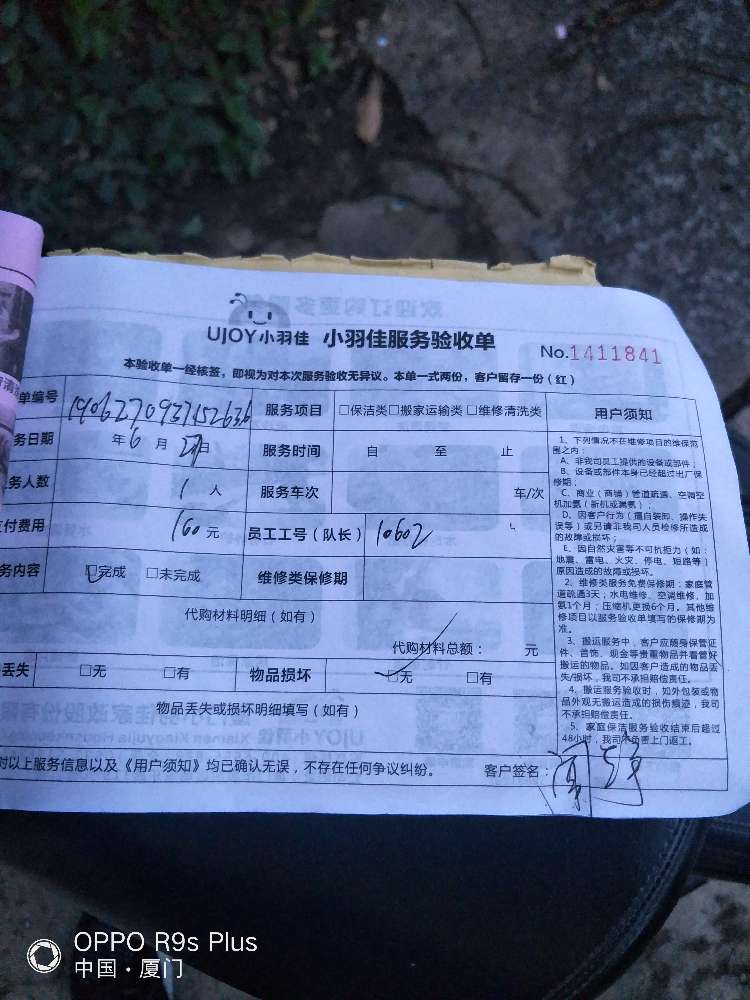 UJOY小羽佳 小羽佳服务验收单 No.1411841
本验收单一经核签，即视为对本次服务验收无异议。本单一式两份，客户留存一份（红）
单编号 服务项目 □保洁类□搬家运输类□维修清洗类 用户须知
务日期 年6月27日 服务时间 自 至 止
务人数 1人 服务车次 车/次
付费用 160元 员工工号（队长） 10602
务内容 □完成 □未完成 维修类保修期
代购材料明细（如有）
代购材料总额： 元
丢失 □无 □有 物品损坏 □无 □有
物品丢失或损坏明细填写（如有）
对以上服务信息以及《用户须知》均已确认无误，不存在任何争议纠纷。 客户签名：
1、下列情况不在维修项目的维保范
围之内：
A、非我司员工提供的设备或部件；
B、设备或部件本身已经超过出厂保
修期；
C、商业（商铺）管道疏通、空调空
机加氨（新机或漏氨）
D、因客户行为（擅自装卸、操作失
误等）或另请非我司人员检修所造成
的故障或损坏；
E、因自然灾害等不可抗拒力（如：
地震、雷电、火灾、停电、短路等）
原因造成的故障或损坏。
2、维修类服务免费保修期：家庭管
道疏通3天；水电维修、空调维修、加
氨1个月；压缩机更换6个月。其他维
修项目以服务验收单填写的保修期为
准。
3、搬运服务中，客户应随身保管证
件、首饰、现金等贵重物品并看管好
搬运的物品。如因客户造成的物品丢
失/损坏，我司不承担赔偿责任。
4、搬运服务验收时，如外包装或物
品外观无搬运造成的损伤痕迹，我司
不承担赔偿责任。
5、家庭保洁服务验收结束后超过
48小时，我司不负责上门返工。
OPPO R9s Plus
中国·厦门